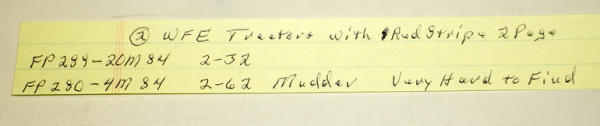 ② WFE Tractors with Red Stripe 2 Page
FP 299-20M 84 2-32
FP 280-4M 84 2-62 Mudder Very Hard to Find